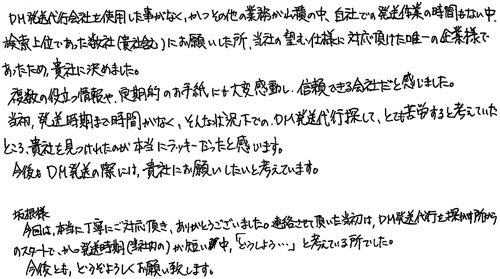 DM発送代行会社を使用した事がなく、かつその他の業務が山積の中、自社での発送作業の時間もない中、
検索上位であった数社(貴社含む)にお願いした所、当社の望む仕様に対応頂けた唯一の企業様で
あったため、貴社に決めました。
複数の役立つ情報や、定期的のお手紙にも大変感動し、信頼できる会社だと感じました。
当初、発送時期まで時間がなく、そんな状況下での、DM発送代行探しで、とても苦労すると考えていた
ところ、貴社を見つけれたのが本当にラッキーだったと感じます。
今後もDM発送の際には、貴社にお願いしたいと考えています。
坂根様
今回は、本当に丁寧にご対応頂き、ありがとうございました。連絡させて頂いた当初は、DM発送代行を探す所から
のスタートで、かつ発送時期(当社の)が短い中、「どうしよう…」と考えている所でした。
今後とも、どうぞよろしくお願い致します。